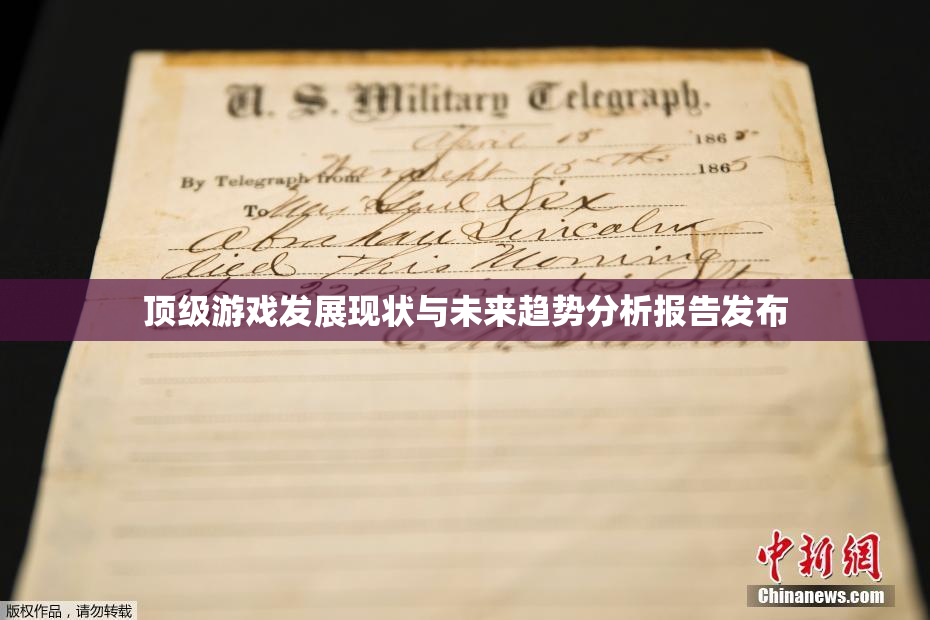 U. S. Military Telegraph.
April 15 1865
By Telegraph from War Dept 15th 1865
To Maj Genl Dix
Abraham Lincoln
died This Morning
22 minutes after
顶级游戏发展现状与未来趋势分析报告发布
E. M. Stanton
中新网
Chinanews.com
版权作品，请勿转载